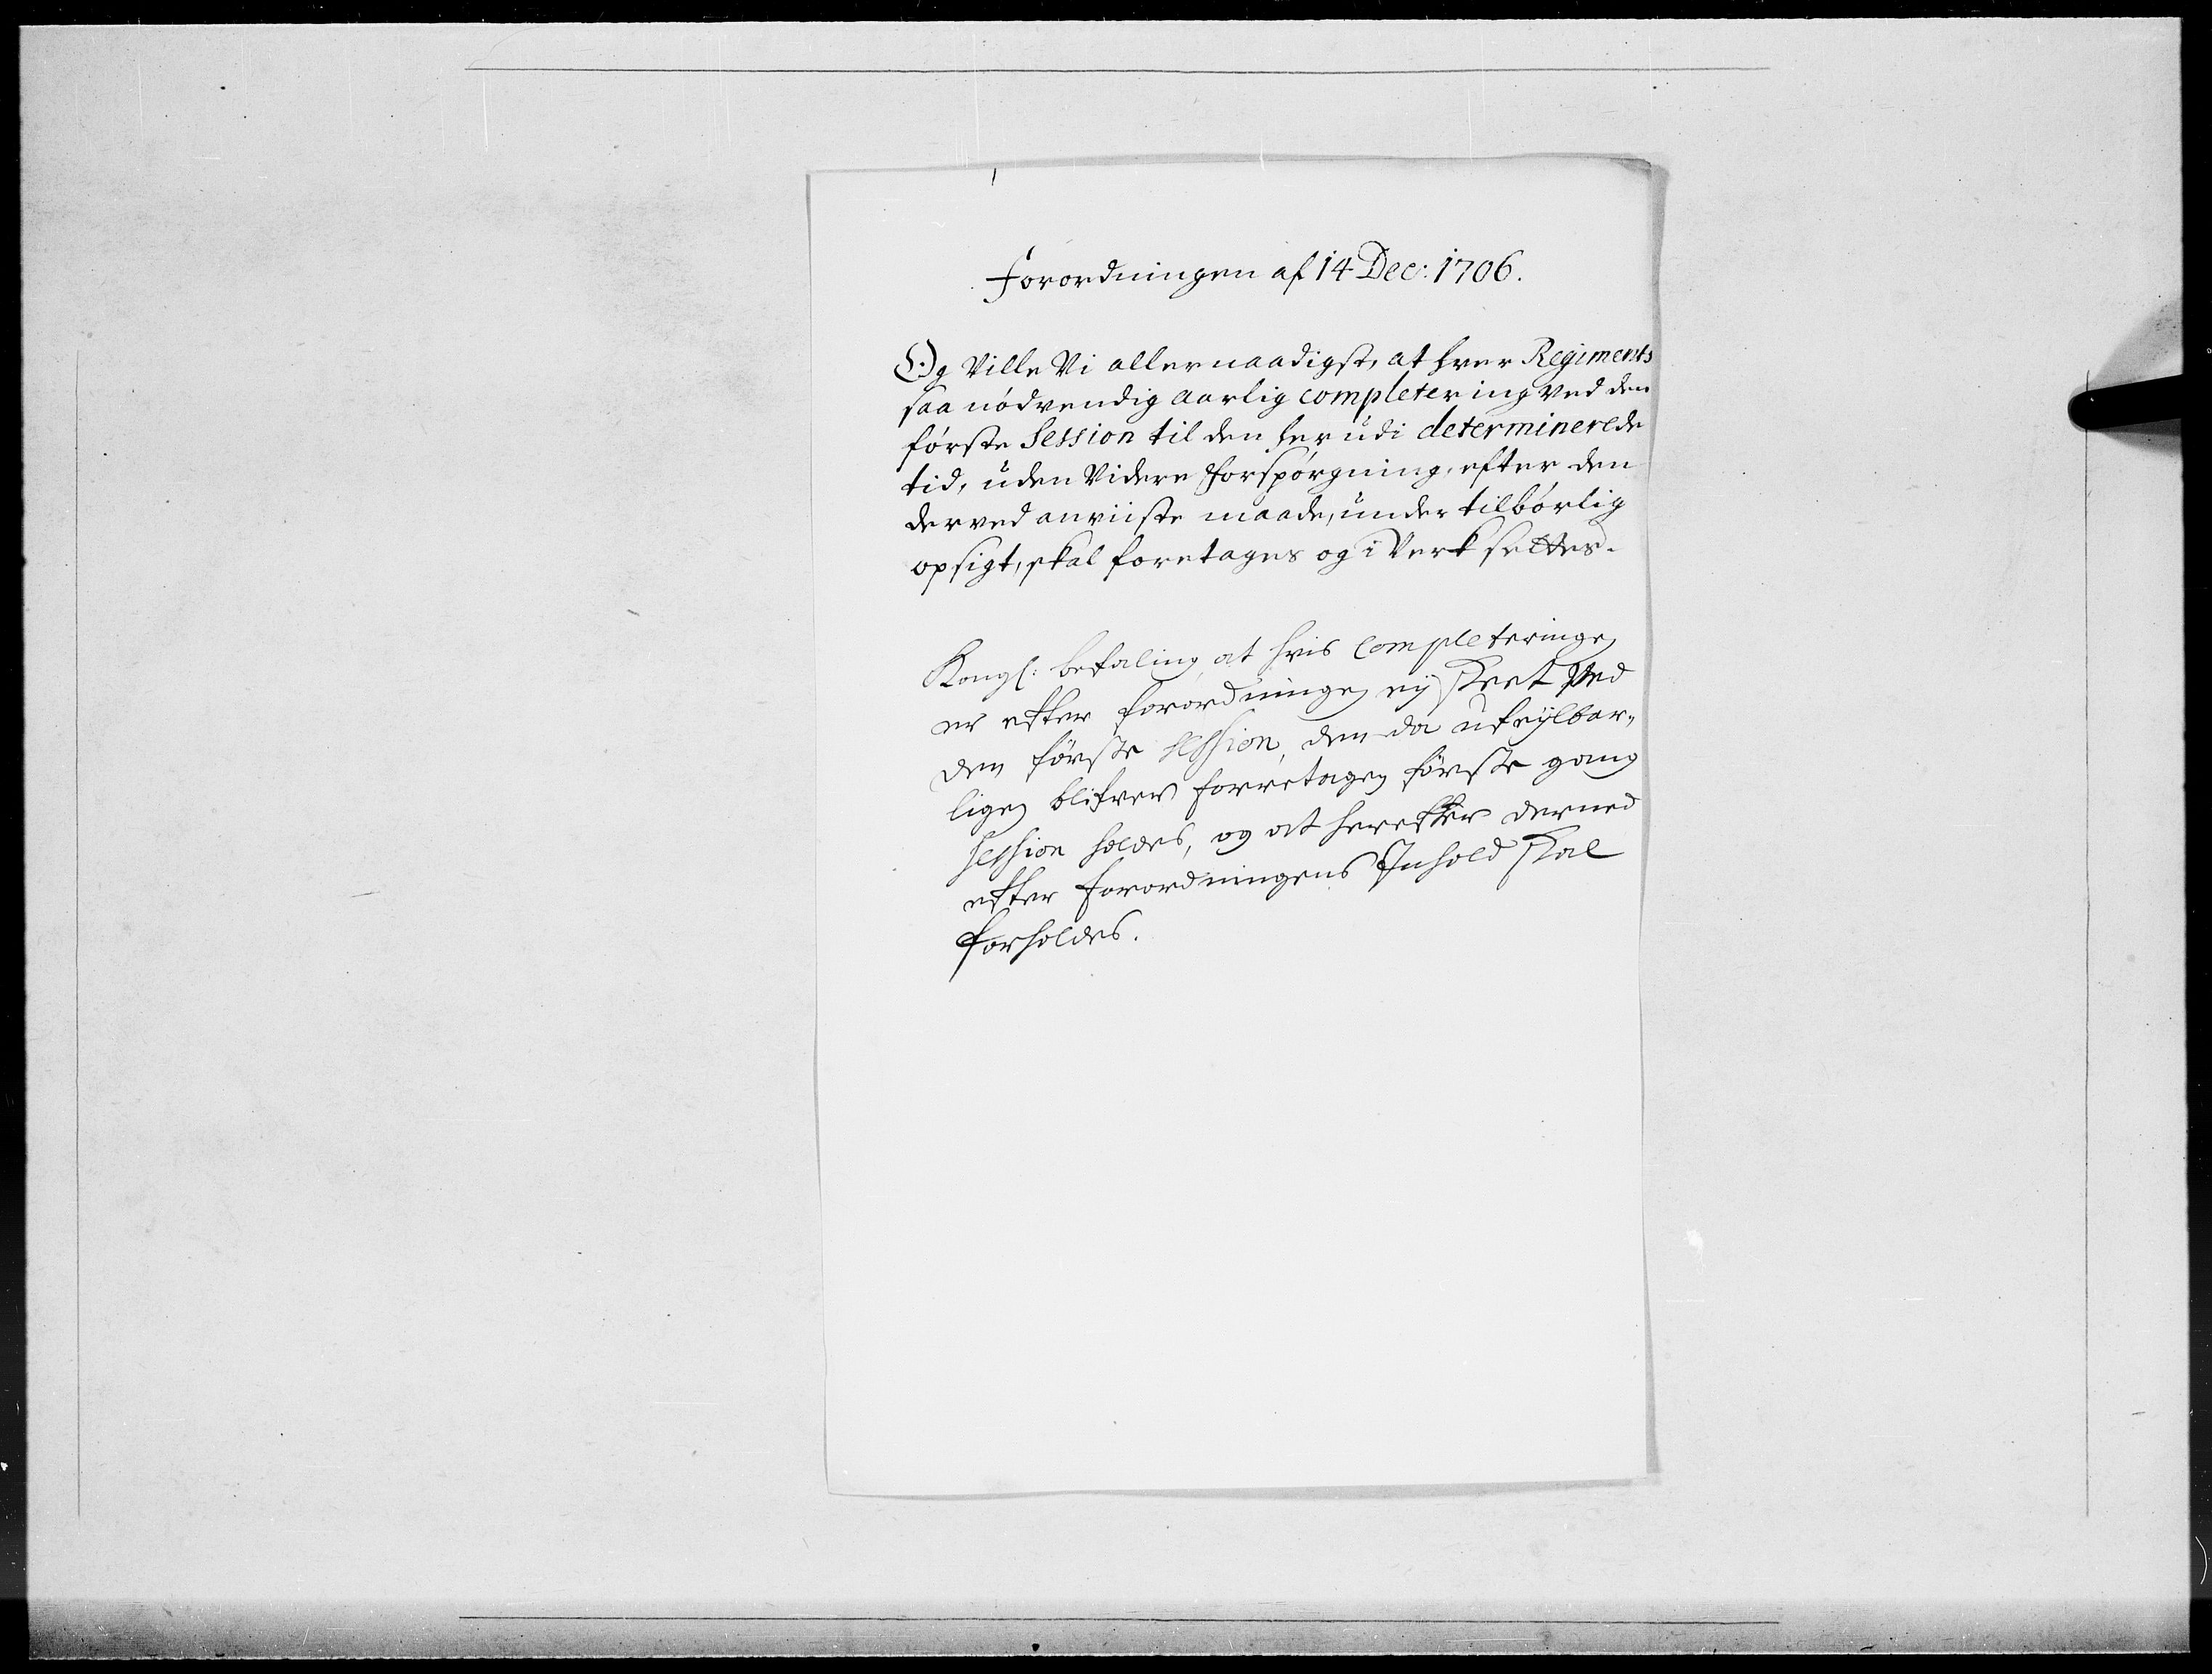 Forordningen af 14 Dec: 1706.
Og Ville Vi allernaadigst, at hver Regiments
saa nödvendig aarlig completering ved den
förste Session til den herudi determinerede
tid, uden Videre Forspörgning, efter den
derved anviiste maade, under tilbörlig
opsigt, skal foretages og i Verk settes.
Kongl: befaling at hvis Completeringen
er efter forordningen eij skeet Ved
den förste session, den da ufeijlbar„
ligen blifver forretagen förste gang
session holdes, og at herefter dermed
efter forordningens Inhold skal
forholdes.